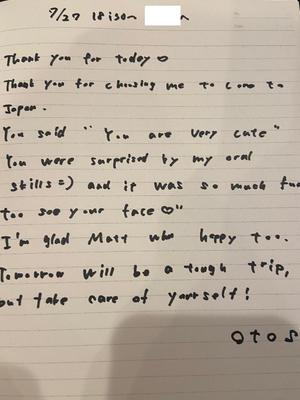 7/27 18:30~
Thank you for today ♡
Thank you for choosing me to come to
Japan.
You said " You are very cute"
You were surprised by my oral
skills=) and it was so much fun
too see your face♡"
I'm glad Matt was happy too.
Tomorrow will be a tough trip,
but take care of yourself!
otos